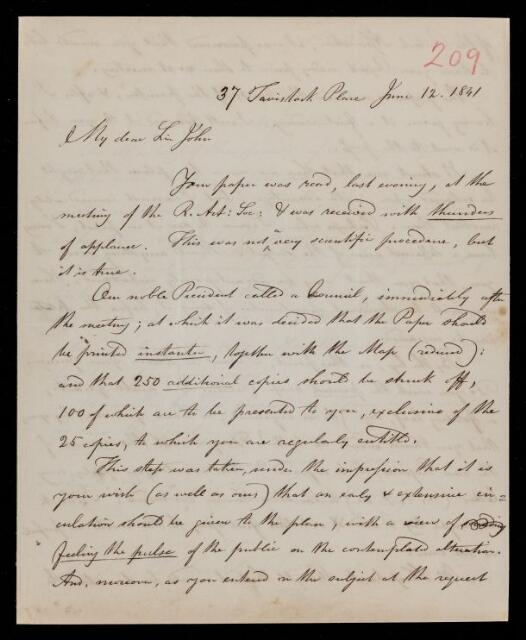 209
37 Tavistock Place June 12. 1841
My dear Sir John
Your paper was read, last evening, at the
meeting of the R. Ast: Soc: & was received with thunders
of applause. This was not very scientific procedure, but
it is true.
Our noble President called a Council, immediately after
the meeting; at which it was decided that the Paper should
be printed instanter, together with the Map (reduced):
and that 250 additional copies should be struck off,
100 of which are to be presented to you, exclusive of the
25 copies, to which you are regularly entitled.
This step was taken, under the impression that it is
your wish (as well as ours) that an early & extensive cir=
culation should be given to the plan, with a view of
feeling the pulse of the public on the contemplated alteration.
And, moreover, as you entered on the subject at the request